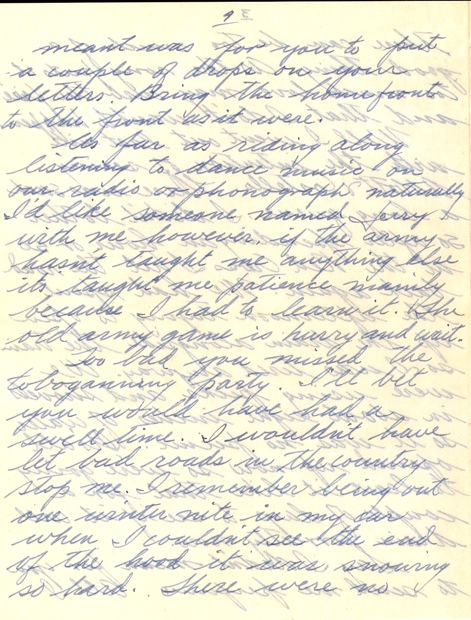 9
meant was for you to put
a couple of drops on your
letters. Bring the homefront
to the front as it were.
As far as riding along
listening to dance music on
our radio or phonograph naturally
I'd like someone named Jerry
with me however, if the army
hasnt taught me anything else
its taught me patience mainly
because I had to learn it. The
old army game is hurry and wait.
Too bad you missed the
toboganning party. I'll bet
you would have had a
swell time. I wouldn't have
let bad roads in the country
stop me. I remember being out
one winter nite in my car
when I couldn't see the end
of the hood it was snowing
so hard. There were no